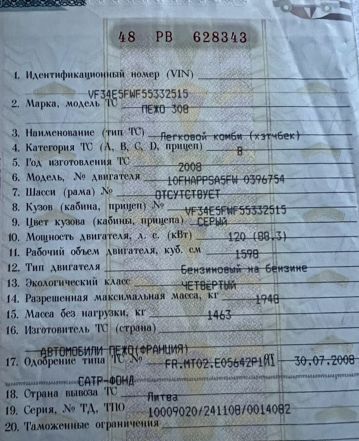 48 РВ 628343
1. Идентификационный номер (VIN)
VF34E5FWF55332515
2. Марка, модель ТС
ПЕЖО 308
3. Наименование (тип ТС) Легковой комби (хэтчбек)
4. Категория ТС (А, В, С, D, прицеп) В
5. Год изготовления ТС 2008
6. Модель, № двигателя 10FHAPPSA5FW 0396754
7. Шасси (рама) № ОТСУТСТВУЕТ
8. Кузов (кабина, прицеп) № VF34E5FWF55332515
9. Цвет кузова (кабины, прицепа) СЕРЫЙ
10. Мощность двигателя, л. с. (кВт) 120 (88.3)
11. Рабочий объем двигателя, куб. см 1598
12. Тип двигателя Бензиновый на бензине
13. Экологический класс ЧЕТВЕРТЫЙ
14. Разрешенная максимальная масса, кг 1948
15. Масса без нагрузки, кг 1463
16. Изготовитель ТС (страна)
АВТОМОБИЛИ ПЕЖО(ФРАНЦИЯ)
17. Одобрение типа ТС № FR.MT02.E05642P1A1 30.07.2008
САТР-ФОНД
18. Страна вывоза ТС Литва
19. Серия, № ТД, ТПО 10009020/241108/0014082
20. Таможенные ограничения